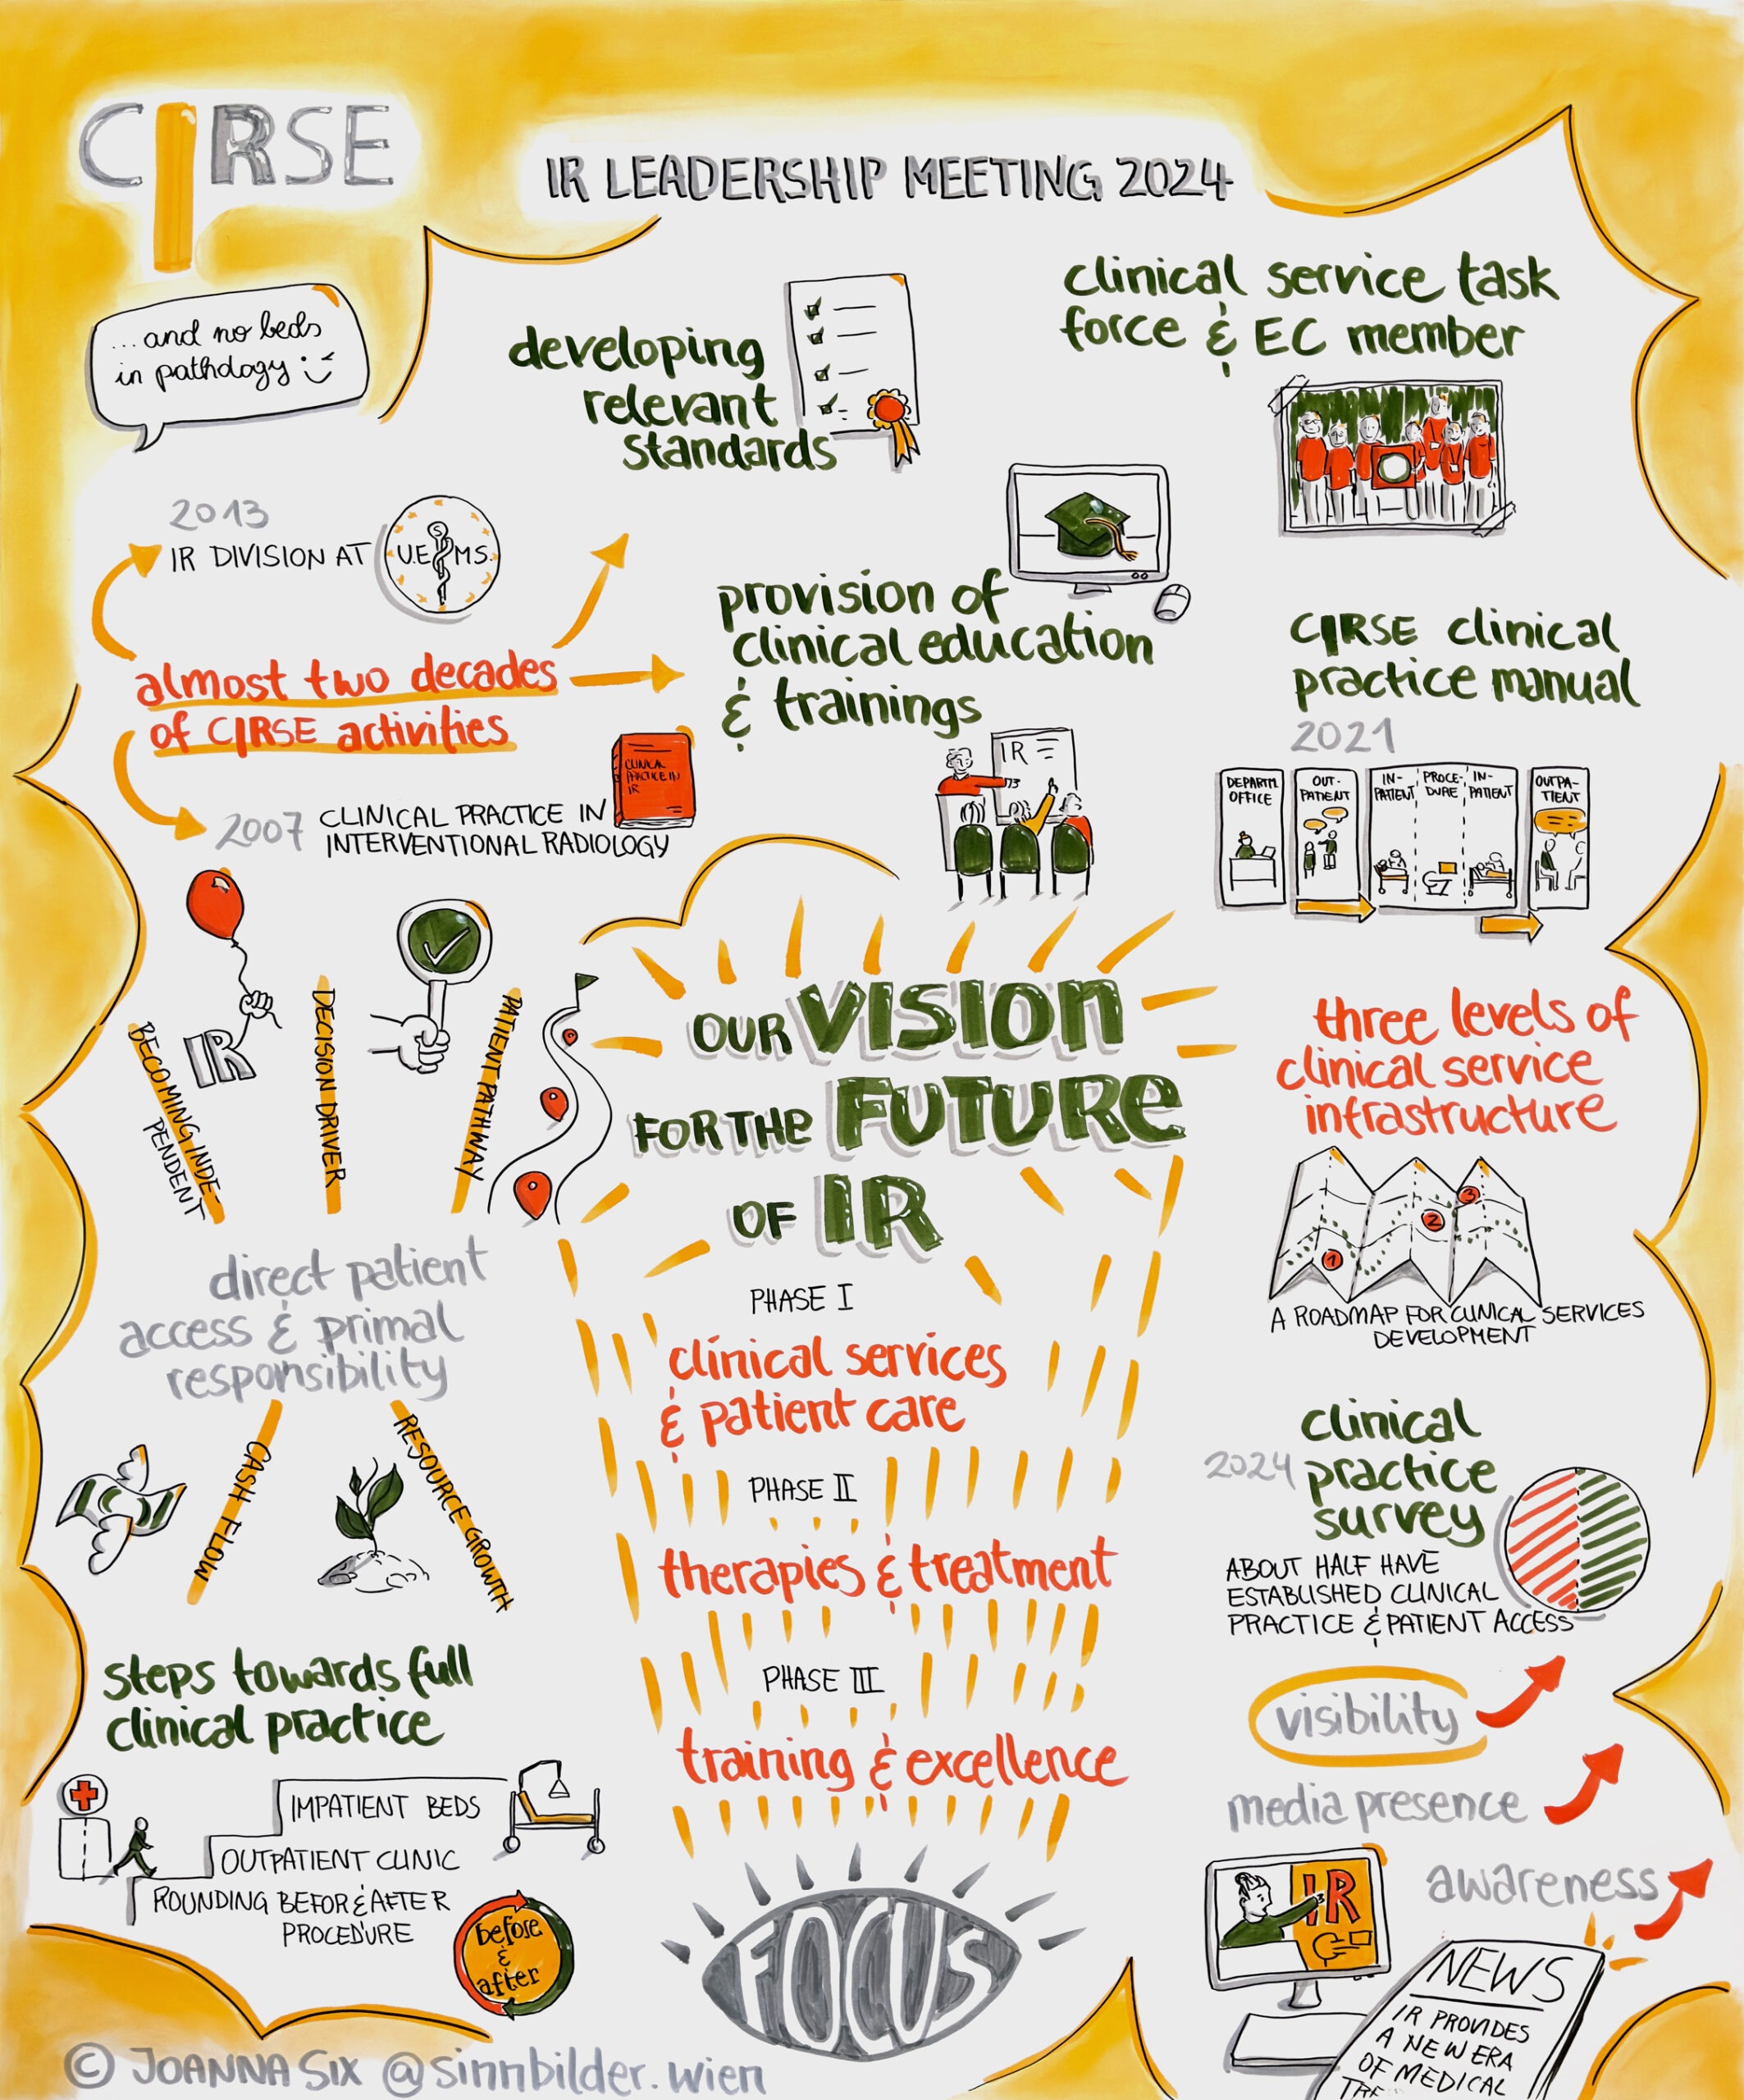 CIRSE
IR LEADERSHIP MEETING 2024
...and no beds
in pathology
developing
relevant
standards
clinical service task
force & EC member
2013
IR DIVISION AT
U.E.M.S.
almost two decades
of CIRSE activities
2007
CLINICAL PRACTICE IN
INTERVENTIONAL RADIOLOGY
CLINICAL
PRACTICE IN
IR
provision of
clinical education
& trainings
IR
CIRSE clinical
practice manual
2021
DEPARTM
OFFICE
OUT-
PATIENT
IN-
PATIENT
PROCE-
DURE
IN-
PATIENT
OUTPA-
TIENT
IR
BECOMING INDE-
PENDENT
DECISION DRIVER
PATIENT PATHWAY
direct patient
access & primal
responsibility
CASH FLOW
RESOURCE GROWTH
OUR VISION
FOR THE FUTURE
OF IR
PHASE I
clinical services
& patient care
PHASE II
therapies & treatment
PHASE III
training & excellence
FOCUS
three levels of
clinical service
infrastructure
1
2
3
A ROADMAP FOR CLINICAL SERVICES
DEVELOPMENT
clinical
2024 practice
survey
ABOUT HALF HAVE
ESTABLISHED CLINICAL
PRACTICE & PATIENT ACCESS
visibility
media presence
awareness
IR
NEWS
IR PROVIDES
A NEW ERA
OF MEDICAL
steps towards full
clinical practice
IMPATIENT BEDS
OUTPATIENT CLINIC
ROUNDING BEFOR & AFTER
PROCEDURE
before
&
after
© JOANNA SIX @sinnbilder.wien